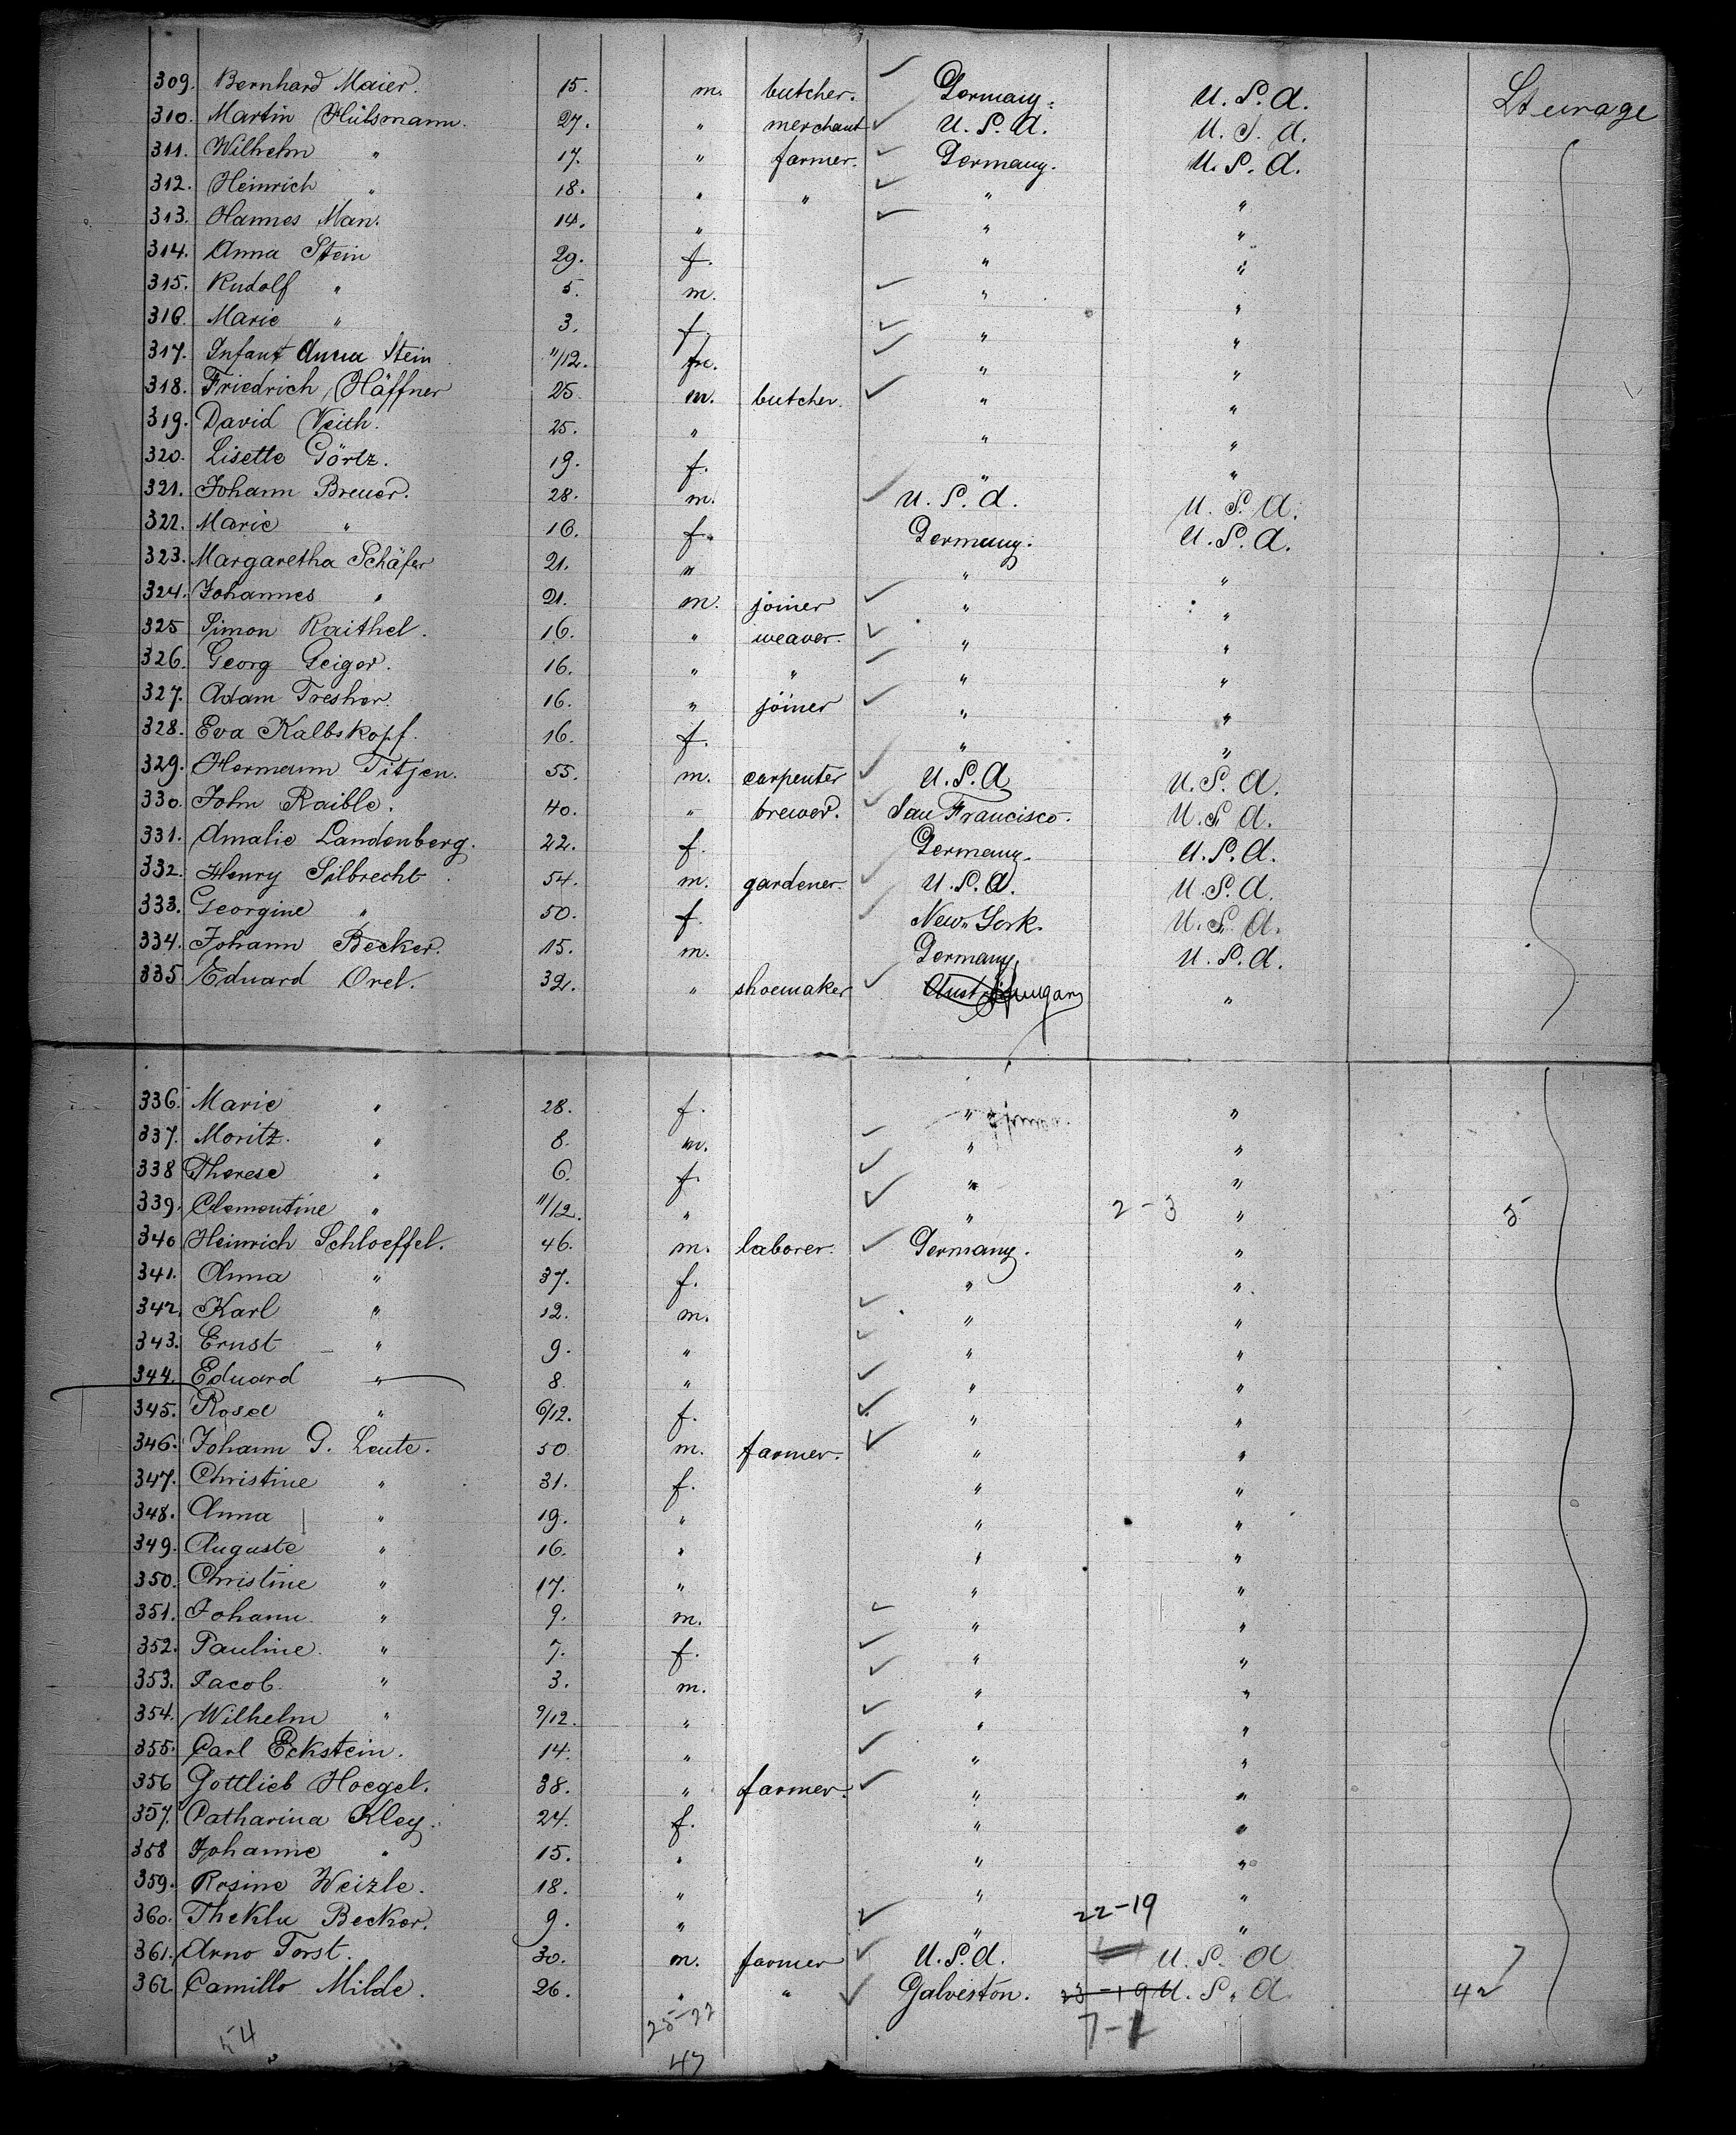 309. Bernhard Maier. 15. m. butcher. Germany. U. S. A. Steurage
310. Martin Hülsmann. 27. " merchant U. S. A. U. S. A.
311. Wilhelm " 17. " farmer. Germany. U. S. A.
312. Heinrich " 18. " " " "
313. Hannes Man. 14. " " "
314. Anna Stein 29. f. " "
315. Rudolf " 5. m. " "
316. Marie " 3. f. " "
317. Infant Anna Stein 11/12. " "
318. Friedrich Häffner 25 m. butcher. " "
319. David Veith. 25. " " "
320. Lisette Görtz. 19. f. " "
321. Johann Breuer. 28. m. U. S. A. U. S. A.
322. Marie " 16. f. Germany. U. S. A.
323. Margaretha Schäfer 21. " " "
324. Johannes " 21. m. joiner " "
325 Simon Raithel. 16. " weaver. " "
326. Georg Geiger. 16. " " " "
327. Adam Tresher. 16. " joiner " "
328. Eva Kalbskopf. 16. f. " "
329. Hermann Titjen. 55. m. carpenter U. S. A U. S. A.
330. John Raible. 40. " brewer. San Francisco. U. S. A.
331. Amalie Landenberg. 22. f. Germany. U. S. A.
332. Henry Silbrecht 54. m. gardener. U. S. A. U. S. A.
333. Georgine " 50. f. New-York. U. S. A.
334. Johann Becker. 15. m. Germany. U. S. A.
335 Eduard Orel. 32. " shoemaker Aust Hungary "
336. Marie " 28. f. " "
337. Moritz. " 8. m. " "
338 Therese " 6. f. " "
339. Clementine " 11/12. " " 2-3 " 5
340 Heinrich Schloeffel. 46. m. laborer. Germany. "
341. Anna " 37. f. " "
342. Karl " 12. m. " "
343. Ernst " 9. " " "
344. Eduard " 8. " " "
345. Rosa " 6/12. f. " "
346. Johann G. Leute. 50 m. farmer. " "
347. Christine " 31. f. " "
348. Anna " 19. " " "
349. Auguste " 16. " " "
350. Christine " 17. " " "
351. Johann " 9. m. " "
352. Pauline. " 7. f. " "
353. Jacob. " 3. m. " "
354. Wilhelm " 9/12. " " "
355. Carl Eckstein. 14. " " "
356 Gottlieb Hoegel. 38. " farmer. " "
357. Catharina Kley. 24. f. " "
358 Johanne " 15. " " "
359. Rosine Weizle. 18. " " "
360. Thekla Becker. 9. " " 22-19 "
361. Arno Torst. 30. m. farmer U. S. A. U. S. A 7
362 Camillo Milde. 26. " " Galveston. 23-19 U. S. A. 42
54 25-22 7-1
47